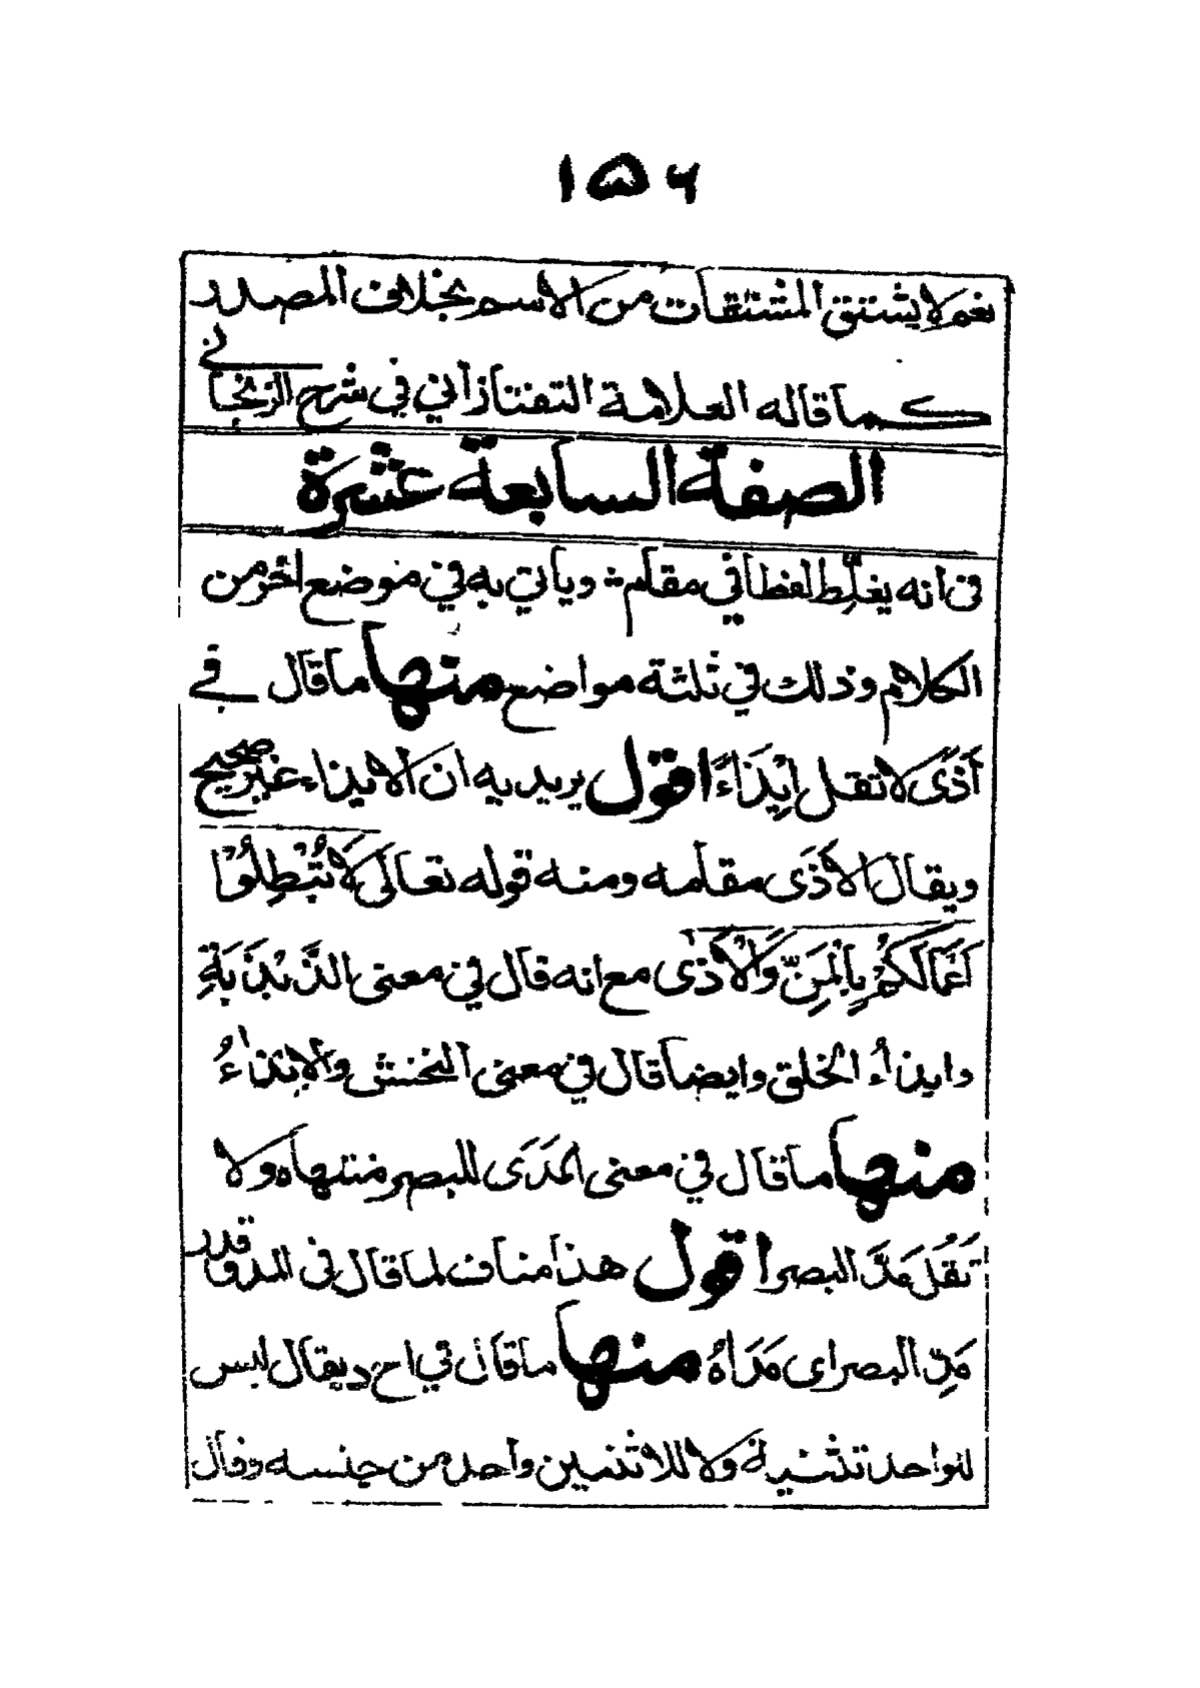 ١٥٦
نعم لا يشتق المشتقات من الاسم بخلاف المصدر
كما قاله العلامة التفتازاني في شرح الزنجاني
الصفة السابعة عشرة
فى انه يغلّط لفظا في مقام ثم ياتي به في موضع اخر من
الكلام وذلك في ثلثة مواضع منها ما قال في
أذًى لا تقل إيْذَاءً اقول يريد به ان الايذاء غير صحيح
ويقال الأذَى مقامه ومنه قوله تعالى لَا تُبْطِلُوْا
اَعْمَالَكُمْ بِالْمَنِّ وَالْاَذٰى مع انه قال في معنى الذَّبْذَبَةِ
وايذاءُ الخلق وايضا قال في معنى النخش والإيذاءُ
منها ما قال في معنى المَدَى للبصر منتهاه ولا
تَقُلْ مَدَّ البصر اقول هذا مناف لما قال فى المد وقدر
مَدِّ البصر اى مَدَاهُ منها ما قال في اح د يقال ليس
للواحد تثنية ولا للاثنين واحد من جنسه وقال